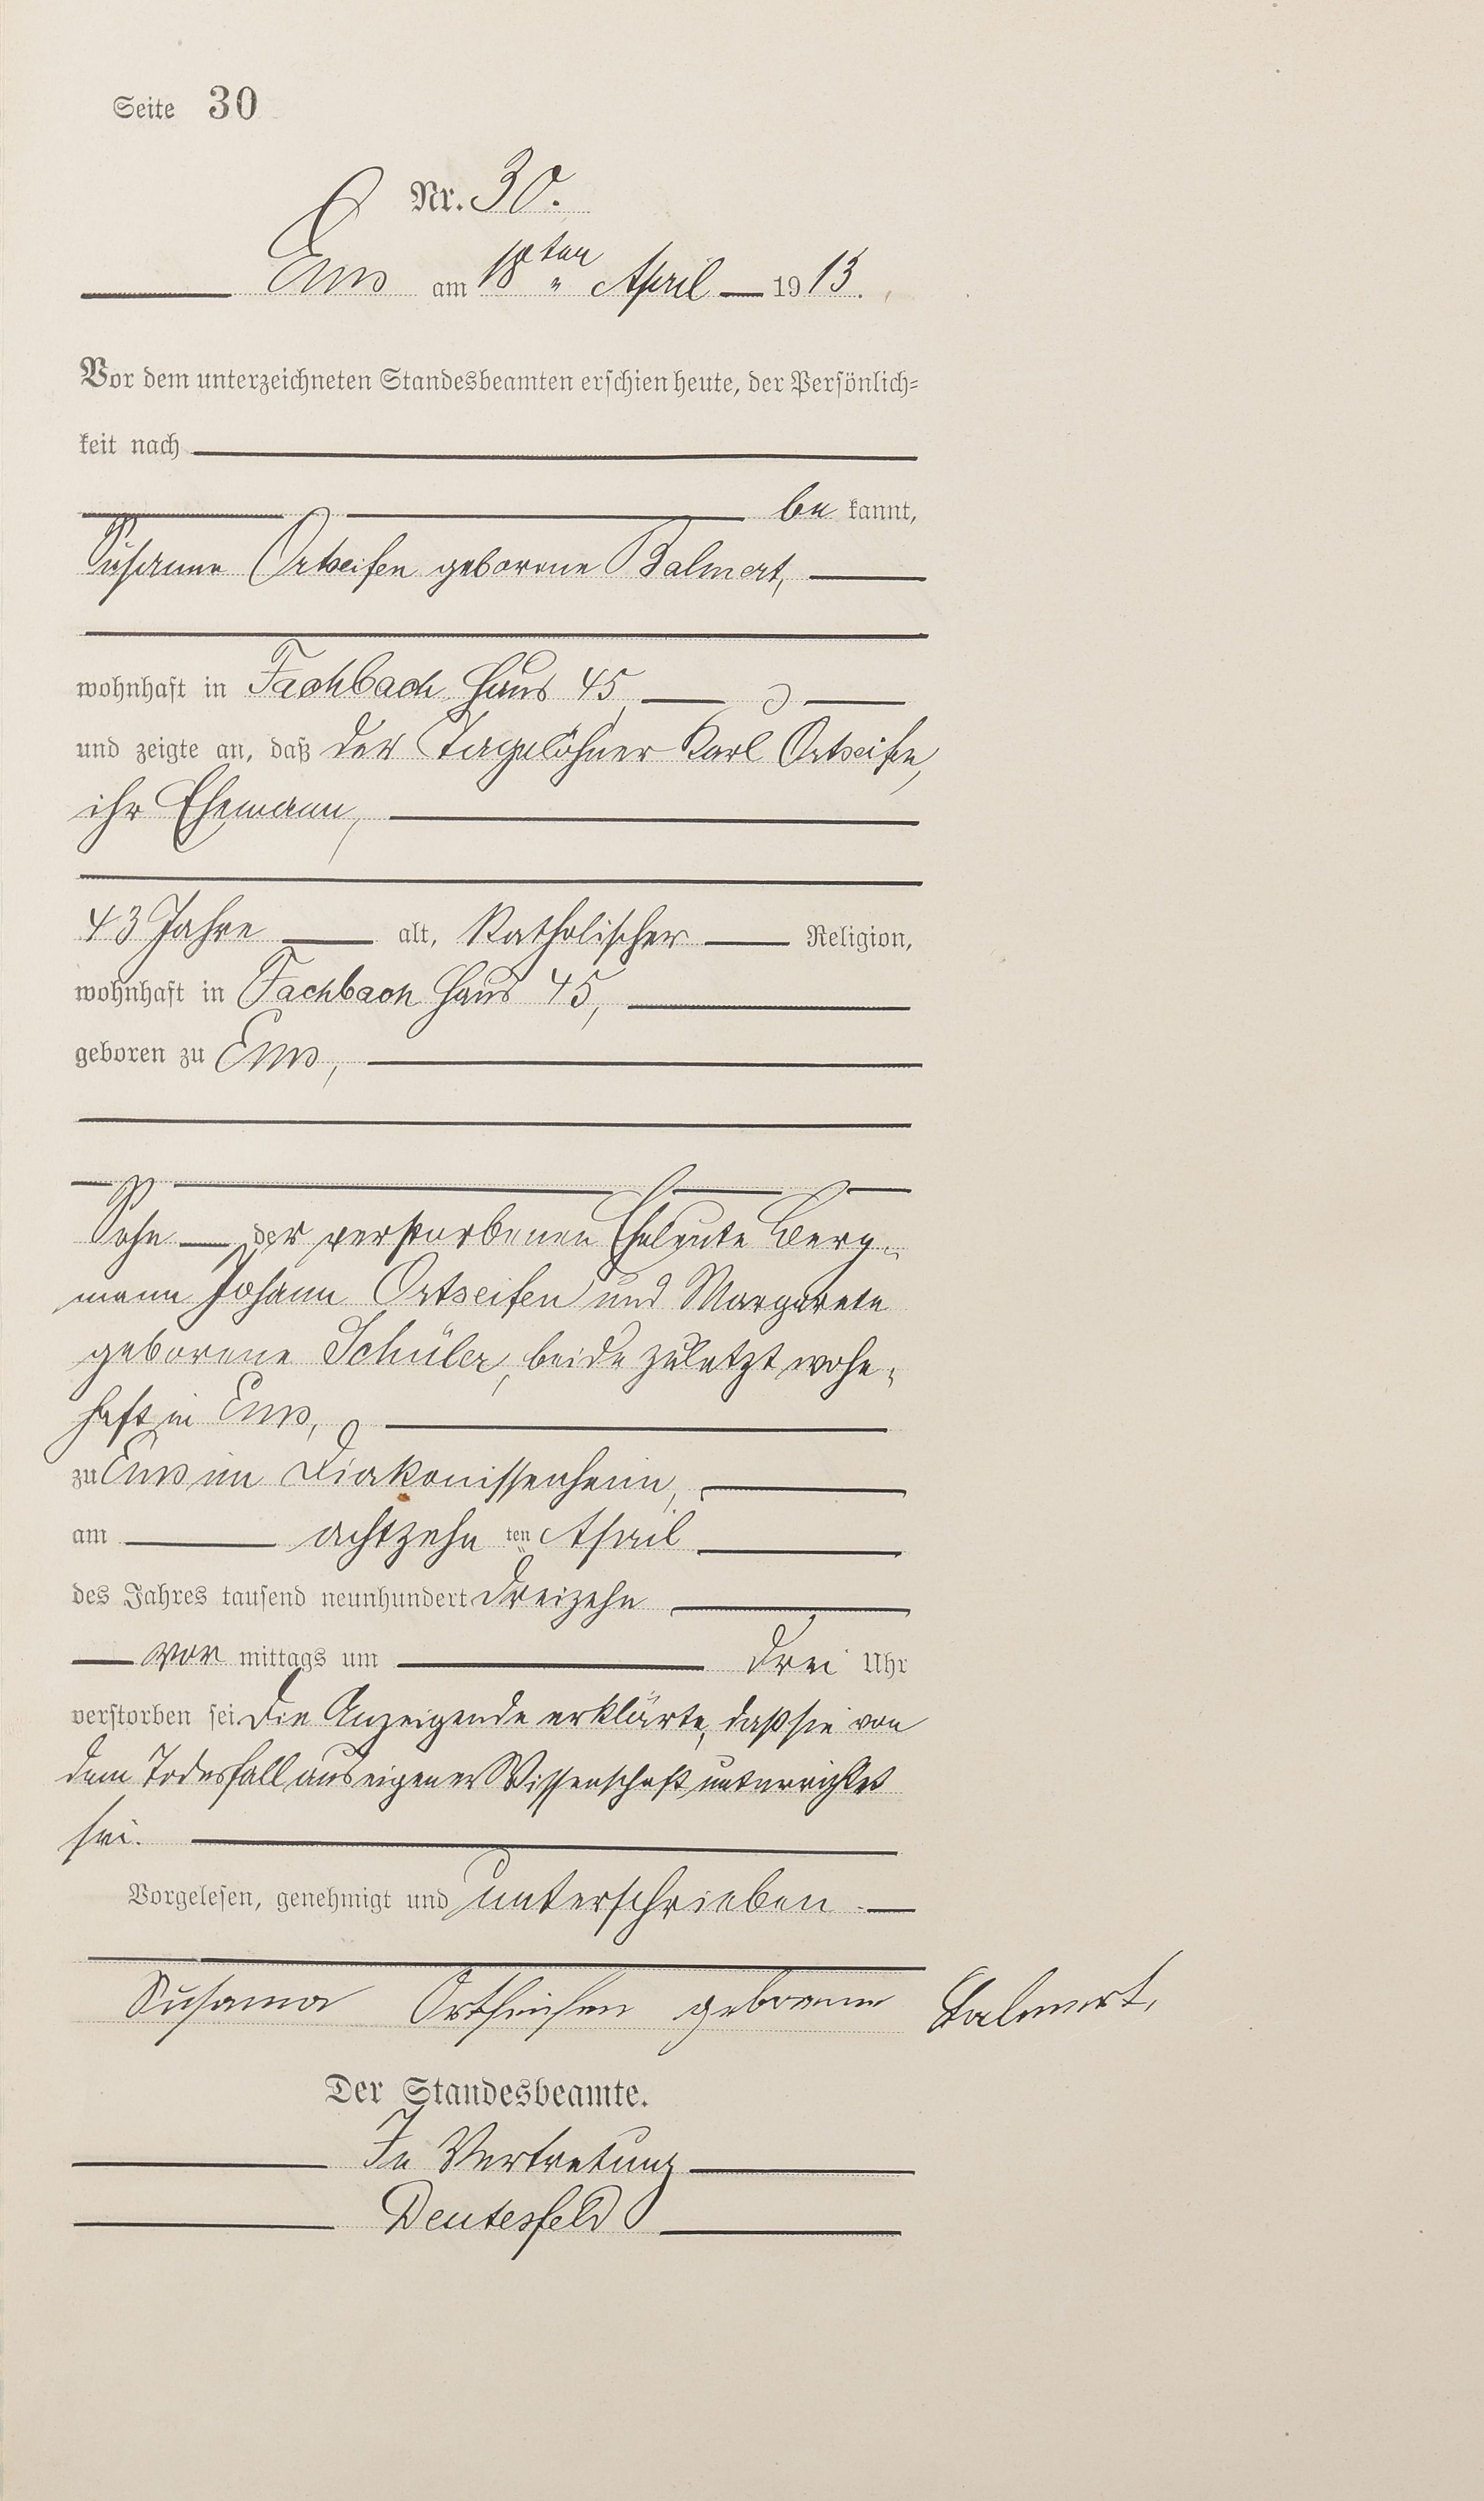 Seite 30
Nr. 30.
Ems am 18ten April 1913.
Vor dem unterzeichneten Standesbeamten erschien heute, der Persönlich=
keit nach
be kannt,
Susanne Ortseifen geborene Balmert,
wohnhaft in Fachbach Haus 45
und zeigte an, daß der Tagelöhner Karl Ortseifen,
ihr Ehemann,
43 Jahre alt, Katholischer Religion,
wohnhaft in Fachbach Haus 45,
geboren zu Ems,
Sohn der verstorbenen Eheleute Berg-
mann Johann Ortseifen und Margarete
geborene Schüler, beide zuletzt wohn-
haft in Ems,
zu Ems im Diakonissenheim,
am achtzehn ten April
des Jahres tausend neunhundert dreizehn
vor mittags um drei Uhr
verstorben sei. Die Anzeigende erklärte, daß sie von
dem Todesfall aus eigener Wissenschaft unterrichtet
sei.
Vorgelesen, genehmigt und unterschrieben
Susanna Ortseifen geborene Balmert,
Der Standesbeamte.
In Vertretung
Deutesfeld